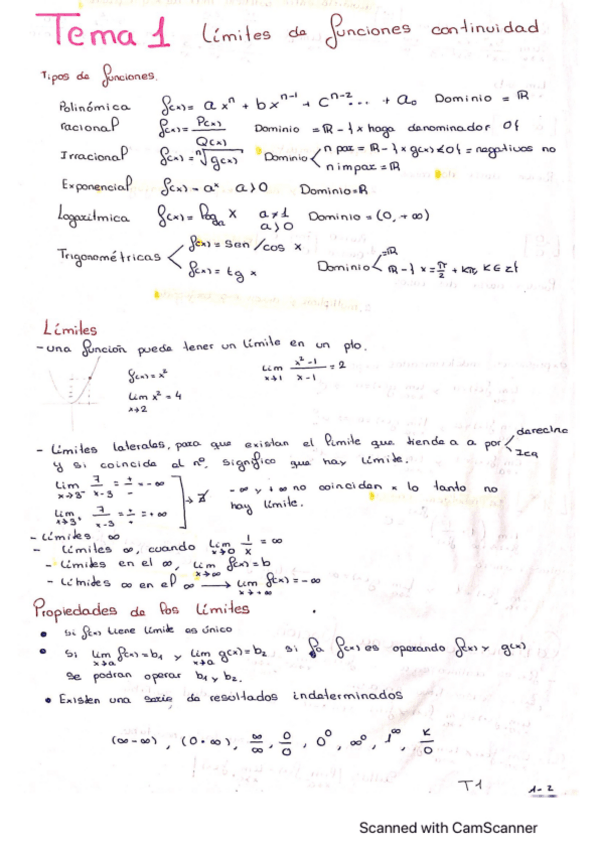 Tema 1 Límites de funciones continuidad
Tipos de funciones.
Polinómica f(x) = a xⁿ + b xⁿ⁻¹ + cⁿ⁻² ... + a₀ Dominio = ℝ
racional f(x) = P(x)/Q(x) Dominio = ℝ - { x haga denominador 0}
Irracional f(x) = ⁿ√g(x) Dominio < n par = ℝ - { x g(x) < 0} = negativos no
n impar = ℝ
Exponencial f(x) = aˣ a>0 Dominio = ℝ
Logarítmica f(x) = logₐ x a≠1 a>0 Dominio = (0, +∞)
Trigonométricas < f(x) = sen/cos x
f(x) = tg x Dominio < = ℝ
ℝ - { x = π/2 + kπ, K ∈ z}
Límites
- una función puede tener un límite en un pto.
f(x) = x² lim x→1 x²-1/x-1 = 2
lim x→2 x² = 4
- Límites laterales, para que existan el límite que tiende a a por < derecha
y si coincide al nº, significa que hay límite. Izq
lim x→3⁻ 7/x-3 = +/- = -∞
→ ∄ -∞ y +∞ no coinciden x lo tanto no
hay límite.
lim x→3⁺ 7/x-3 = +/+ = +∞
- Límites ∞
- Límites ∞, cuando lim x→0 1/x = ∞
- Límites en el ∞, lim x→∞ f(x) = b
- Límites ∞ en el ∞ → lim x→+∞ f(x) = -∞
Propiedades de los límites
• Si f(x) tiene límite es único
• Si lim x→a f(x) = b₁ y lim x→a g(x) = b₂ si la f(x) es operando f(x) y g(x)
se podran operar b₁ y b₂.
• Existen una serie de resoltados indeterminados
(∞-∞), (0·∞), ∞/∞, 0/0, 0⁰, ∞⁰, 1^∞, K/0
T1 1-2
Scanned with CamScanner